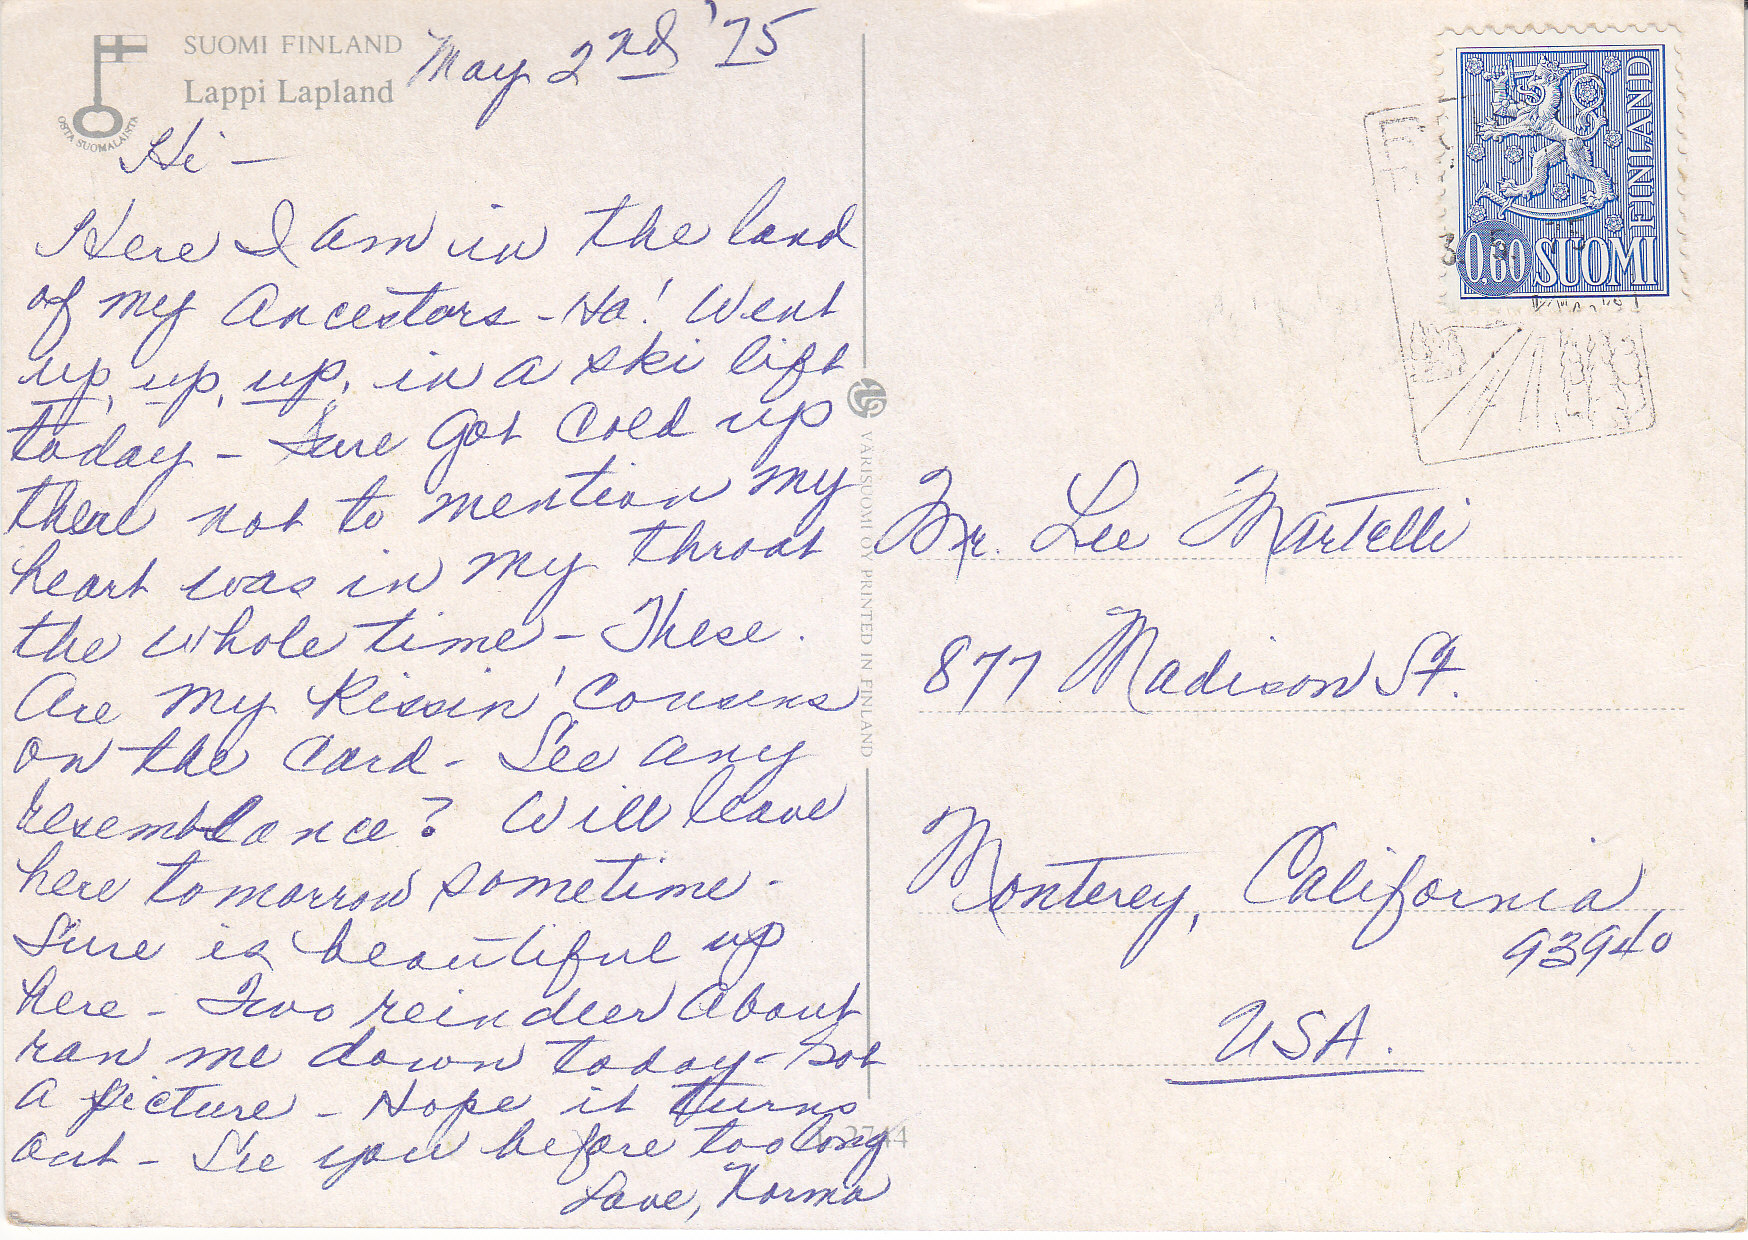 SUOMI FINLAND
Lappi Lapland
OSTA SUOMALAISTA
May 2nd '75
Hi —
Here I am in the land
of my Ancestors - Ha! Went
up, up, up, in a ski lift
today - Sure got cold up
there not to mention my
heart was in my throat
the whole time - These
are my Kissin' Cousens
on the card - See any
resemblance? Will leave
here tomorrow sometime -
Sure is beautiful up
here - Two reindeer about
ran me down today - Got
a picture - Hope it turns
out - See you before too long
Love, Norma
VÄRISUOMI OY PRINTED IN FINLAND
2744
FINLAND
0,60 SUOMI
Mr. Lee Martelli
877 Madison St.
Monterey, California,
93940
USA.